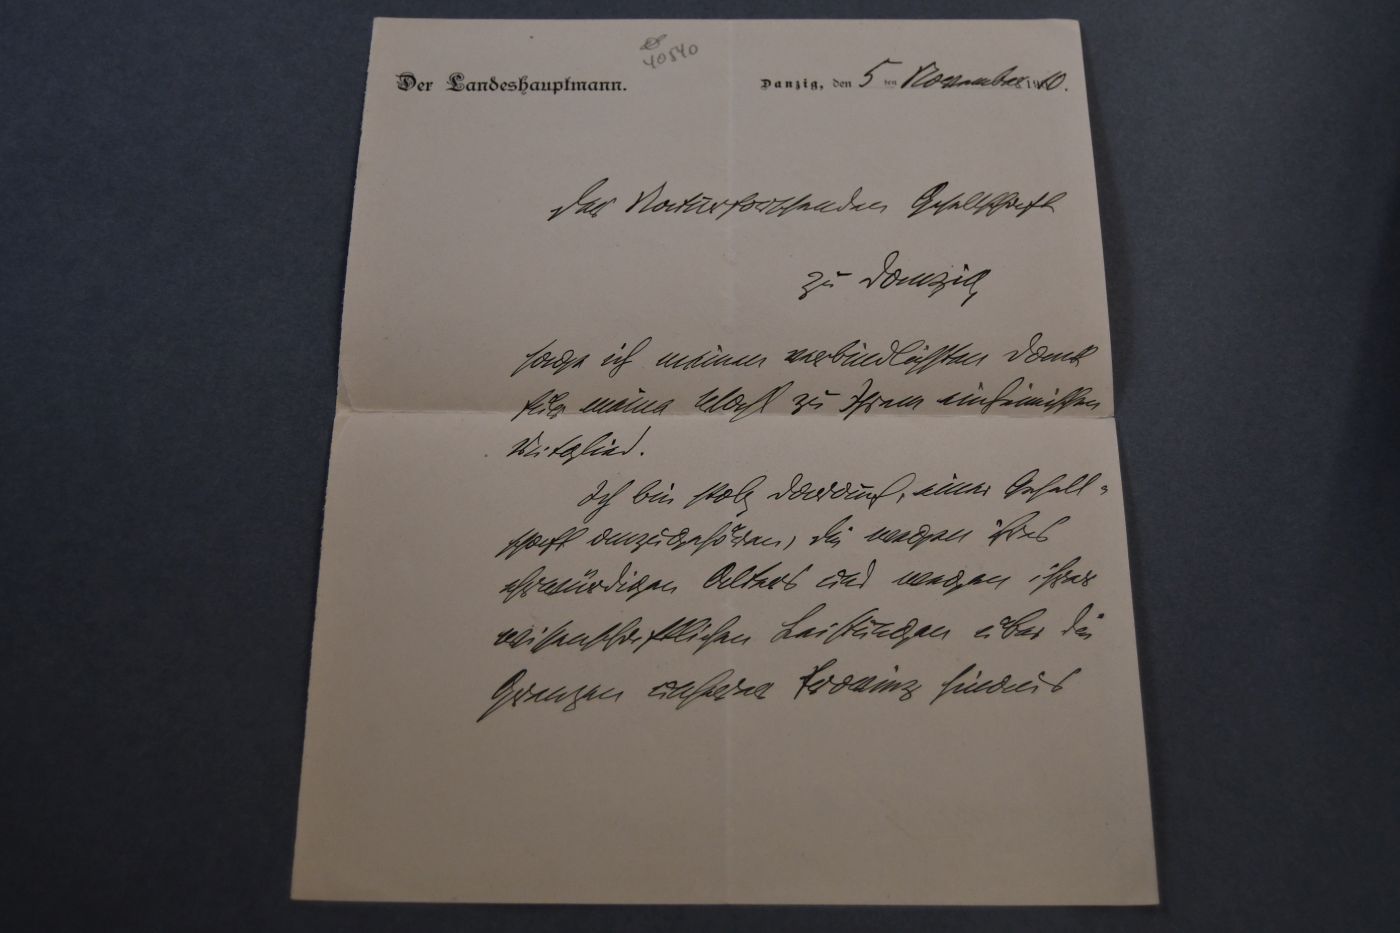 40540
Der Landeshauptmann.
Danzig, den 5ten November 1910.
Der Naturforschenden Gesellschaft
zu Danzig
sage ich meinen verbindlichsten Dank
für meine Wahl zu Ihrem einheimischen
Mitglied.
Ich bin stolz darauf, einer Gesell-
schaft anzugehören, die wegen ihres
ehrwürdigen Alters und wegen ihrer
wissenschaftlichen Leistungen über die
Grenzen unserer Provinz hinaus